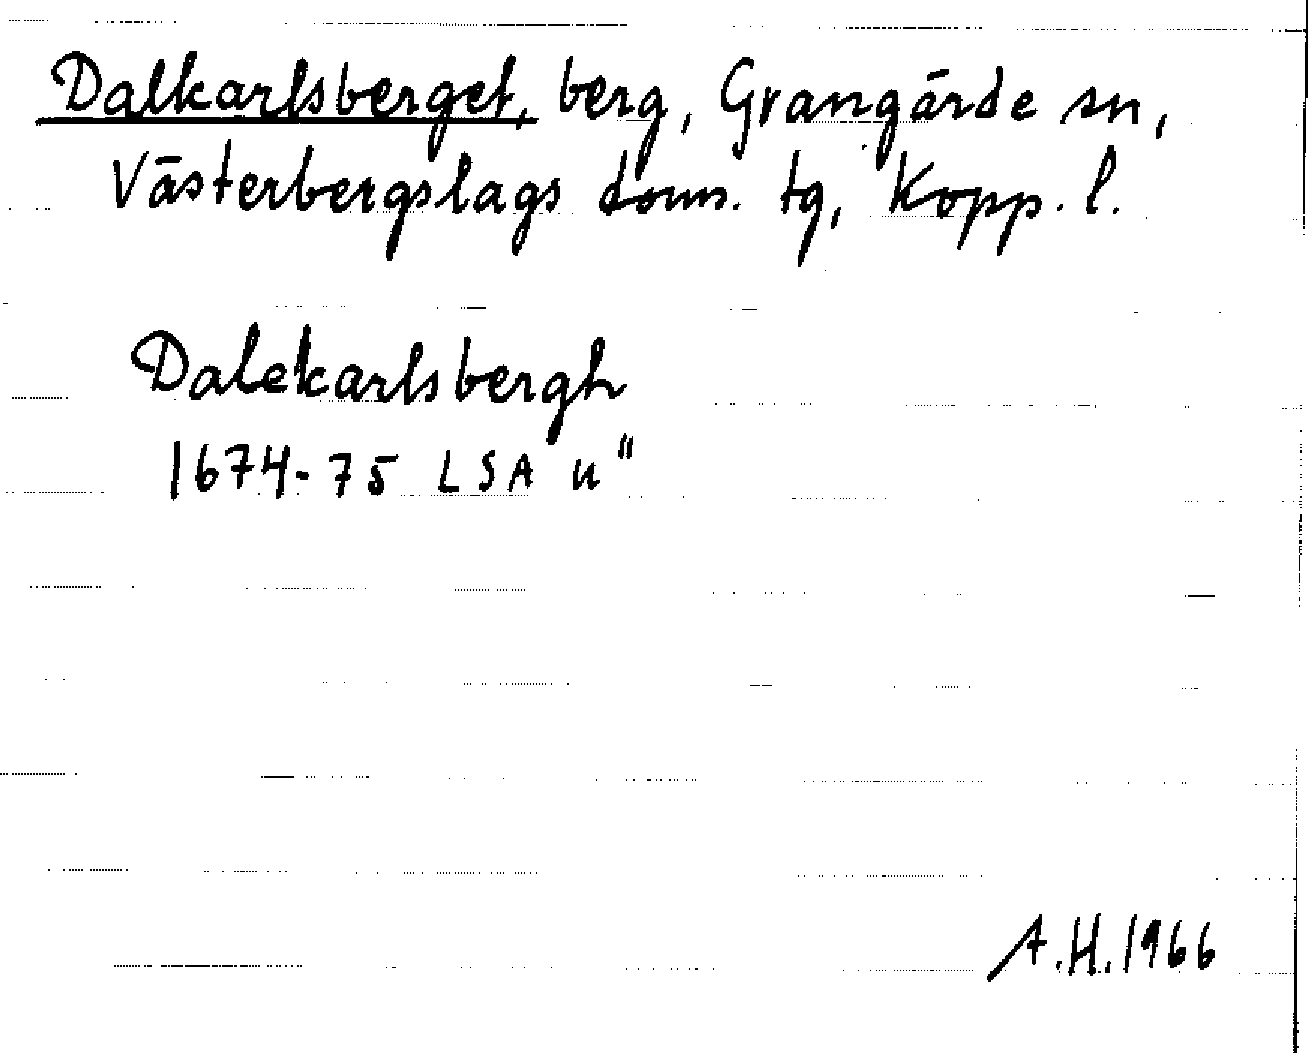 Dalkarlsberget, berg, Grangärde sn,
Västerbergslags doms. tg, Kopp. l.
Dalekarlsbergh
1674-75 LSA u"
A.H. 1966